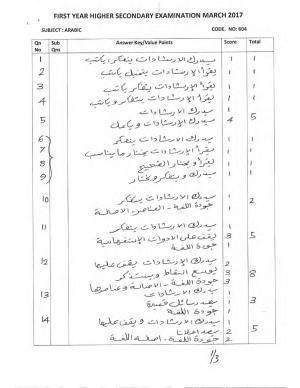 FIRST YEAR HIGHER SECONDARY EXAMINATION MARCH 2017
SUBJECT : ARABIC CODE. NO: 604
Qn No Sub Qns Answer Key/Value Points Score Total
1 يدرك الإرشادات يتفكر، يكتب 1 1
2 يقرأ الإرشادات يتخيل يكتب 1 1
3 يقرأ الإرشادات يتفكر يكتب 1 1
4 يقرأ الإرشادات يتفكر ويكتب 1 1
5 يدرك الإرشادات 1
يدرك الإرشادات ويكمل 4 5
6 يدرك الإرشادات يتفكر 1
7 يقرأ الإرشادات يختار ما يناسب 1
8 يقرأ ويختار الصحيح 1
9 يدرك ويتفكر ويختار 1
10 يدرك الإرشادات يتفكر 1
جودة اللغة - العناصر - الأصالة 1 2
11 يدرك الإرشادات يتفكر 1
يقف على الأدوات الاستفهامية 3 5
جودة اللغة 1
12 يدرك الإرشادات يقف عليها 2
يوسع النقاط ويستذكر 3 8
جودة اللغة - الأصالة وعناصرها 3
13 يدرك الإرشادات 1
يعد رسائل قصيرة 1 3
جودة اللغة 1
14 يدرك الإرشادات و يقف عليها 1
يعد إعلانا 2 5
جودة اللغة - أصلة اللغة 2
1/3